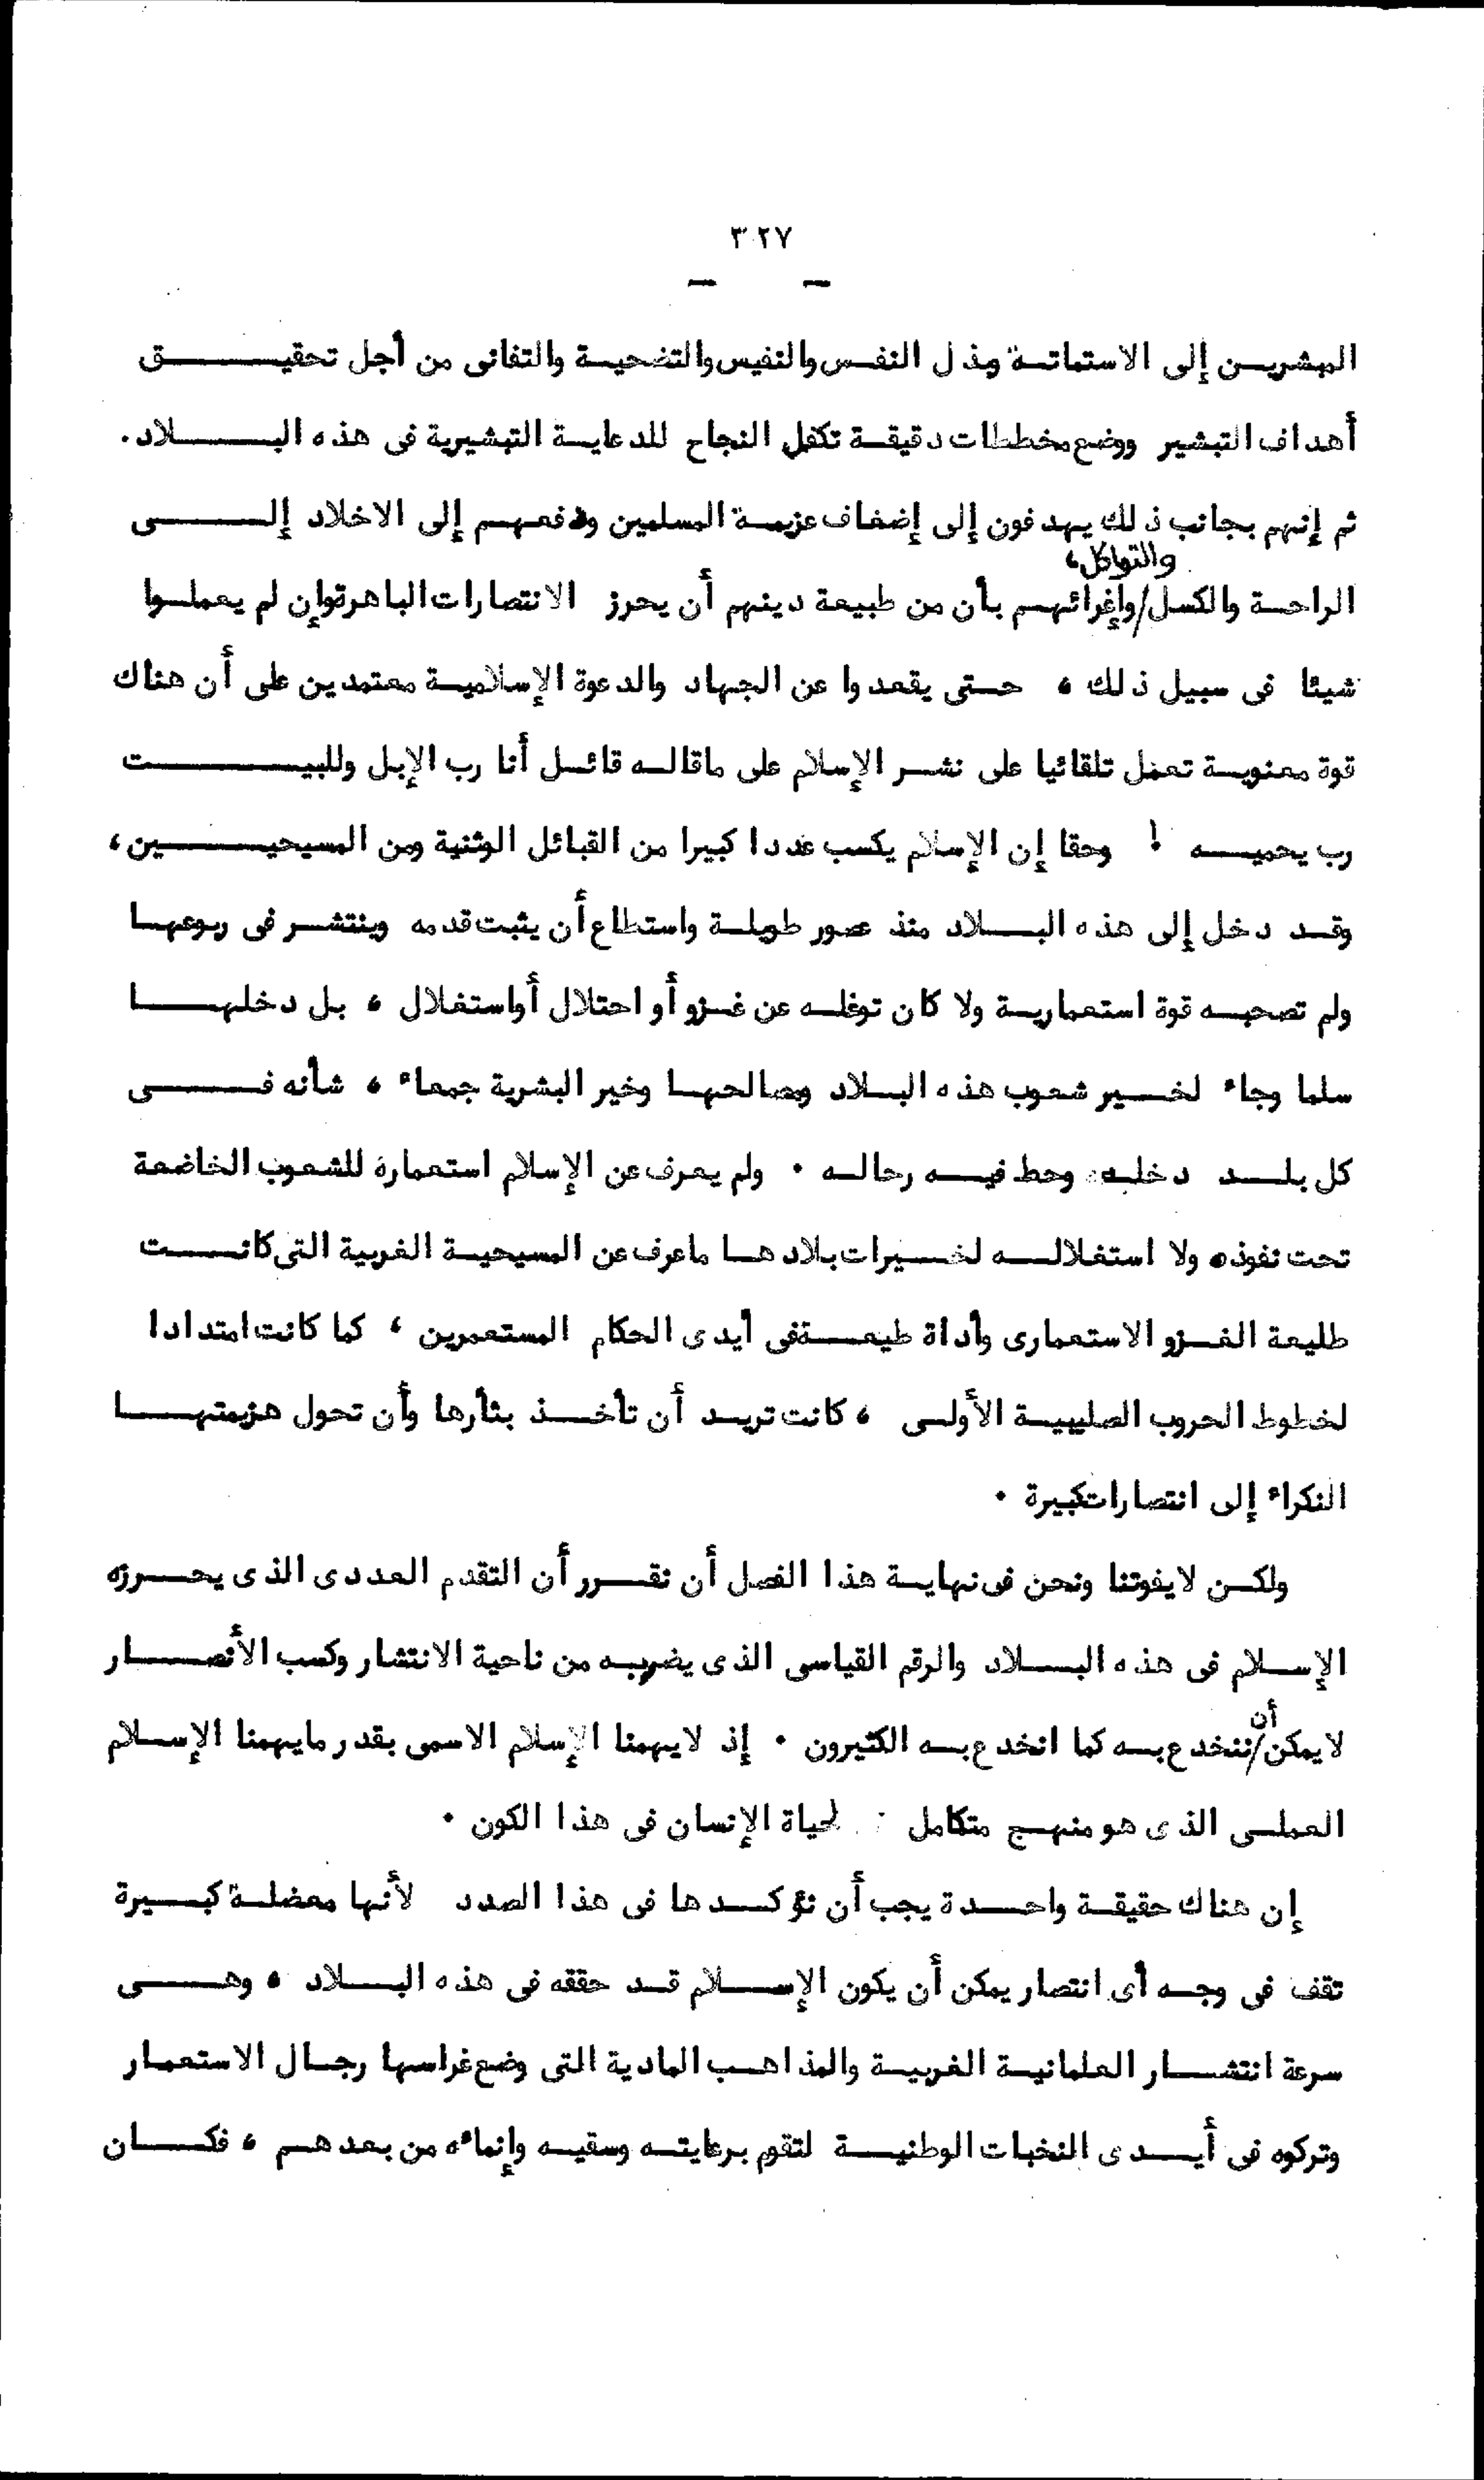 ٣٢٧
المبشرين إلى الاستماتة وبذل النفس والنفيس والتضحية والتفانى من أجل تحقيق
أهداف التبشير ووضع مخططات دقيقة تكفل النجاح للدعاية التبشيرية فى هذه البلاد.
ثم إنهم بجانب ذلك يهدفون إلى إضعاف عزيمة المسلمين ودفعهم إلى الاخلاد إلى
والتواكل،
الراحة والكسل/وإغرائهم بأن من طبيعة دينهم أن يحرز الانتصارات الباهرة وإن لم يعملوا
شيئا فى سبيل ذلك ، حتى يقعدوا عن الجهاد والدعوة الإسلامية معتمدين على أن هناك
قوة معنوية تعمل تلقائيا على نشر الإسلام على ماقاله قائل أنا رب الإبل وللبيت
رب يحميه ! وحقا إن الإسلام يكسب عددا كبيرا من القبائل الوثنية ومن المسيحيين ،
وقد دخل إلى هذه البلاد منذ عصور طويلة واستطاع أن يثبت قدمه وينتشر فى ربوعها
ولم تصحبه قوة استعمارية ولا كان توغله عن غزو أو احتلال أواستغلال ، بل دخلها
سلما وجاء لخير شعوب هذه البلاد ومصالحها وخير البشرية جمعاء ، شأنه فى
كل بلد دخله وحط فيه رحاله . ولم يعرف عن الإسلام استعماره للشعوب الخاضعة
تحت نفوذه ولا استغلاله لخيرات بلادها ماعرف عن المسيحية الغربية التى كانت
طليعة الغزو الاستعمارى وأداة طيعة فى أيدى الحكام المستعمرين ، كما كانت امتدادا
لخطوط الحروب الصليبية الأولى ، كانت تريد أن تأخذ بثأرها وأن تحول هزيمتها
النكراء إلى انتصارات كبيرة .
ولكن لايفوتنا ونحن فى نهاية هذا الفصل أن نقرر أن التقدم العددى الذى يحرزه
الإسلام فى هذه البلاد والرقم القياسى الذى يضربه من ناحية الانتشار وكسب الأنصار
أن
لايمكن/ننخدع به كما انخدع به الكثيرون . إذ لايهمنا الإسلام الاسمى بقدر مايهمنا الإسلام
العملى الذى هو منهج متكامل لحياة الإنسان فى هذا الكون .
إن هناك حقيقة واحدة يجب أن نؤكدها فى هذا الصدد لأنها معضلة كبيرة
تقف فى وجه أى انتصار يمكن أن يكون الإسلام قد حققه فى هذه البلاد ، وهى
سرعة انتشار العلمانية الغربية والمذاهب المادية التى وضع غراسها رجال الاستعمار
وتركوه فى أيدى النخبات الوطنية لتقوم برعايته وسقيه وإنماءه من بعدهم ، فكان